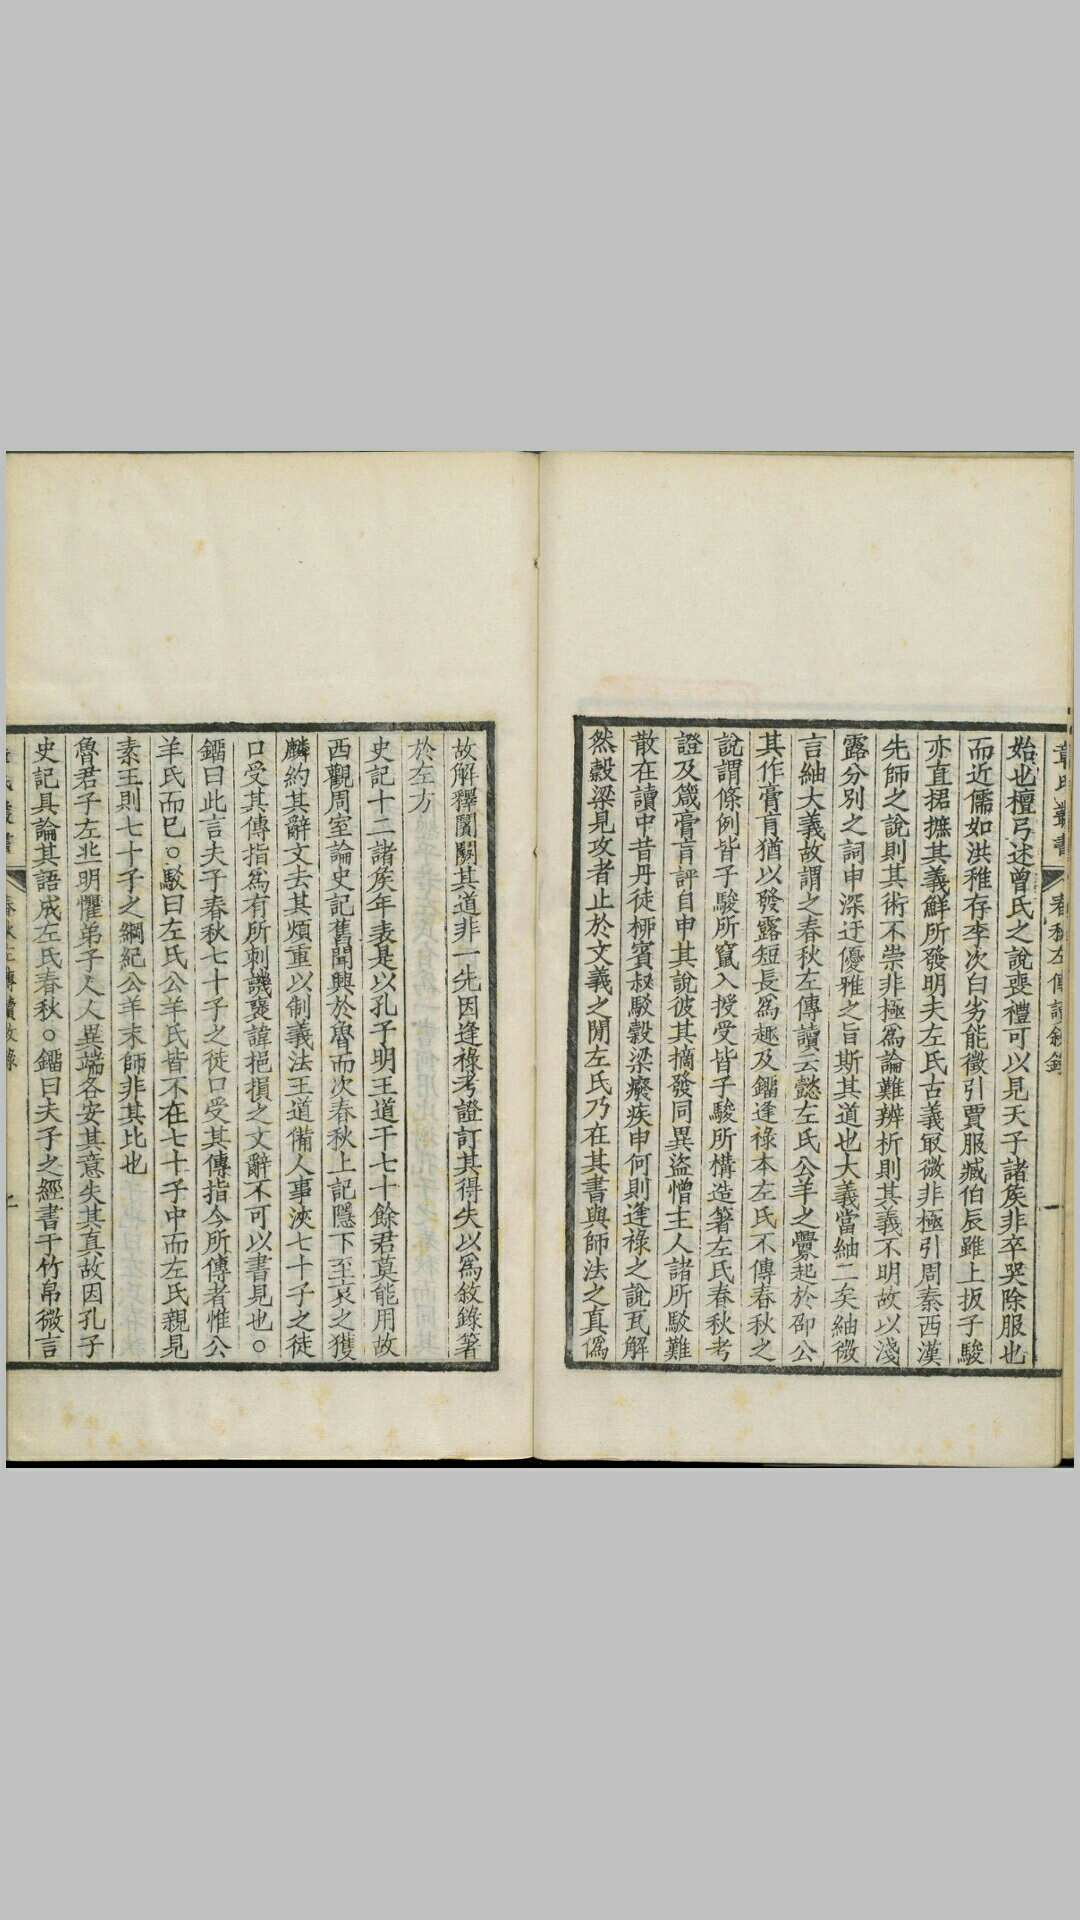 章氏叢書 春秋左傳讀敘錄 一
始也檀弓述曾氏之說喪禮可以見天子諸矦非卒哭除服也
而近儒如洪稚存李次白劣能徵引賈服臧伯辰雖上扳子駿
亦直捃摭其義鮮所發明夫左氏古義冣微非極引周秦西漢
先師之說則其術不崇非極爲論難辨析則其義不明故以淺
露分別之詞申深迂優雅之旨斯其道也大義當紬二矣紬微
言紬大義故謂之春秋左傳讀云懿左氏公羊之釁起於邵公
其作膏肓猶以發露短長爲趣及鎦逢祿本左氏不傳春秋之
說謂條例皆子駿所竄入授受皆子駿所構造箸左氏春秋考
證及箴膏肓評自申其說彼其摘發同異盜憎主人諸所駁難
散在讀中昔丹徒柳賓叔駁穀梁癈疾申何則逢祿之說瓦解
然穀梁見攻者止於文義之閒左氏乃在其書與師法之真僞
故解釋闓關其道非一先因逢祿考證訂其得失以爲敘錄箸
於左方
史記十二諸矦年表是以孔子明王道干七十餘君莫能用故
西觀周室論史記舊聞興於魯而次春秋上記隱下至哀之獲
麟約其辭文去其煩重以制義法王道備人事浹七十子之徒
口受其傳指爲有所刺譏襃諱挹損之文辭不可以書見也○
鎦曰此言夫子春秋七十子之徒口受其傳指今所傳者惟公
羊氏而已○駁曰左氏公羊氏皆不在七十子中而左氏親見
素王則七十子之綱紀公羊末師非其比也
魯君子左丘明懼弟子人人異端各安其意失其真故因孔子
史記具論其語成左氏春秋○鎦曰夫子之經書于竹帛微言